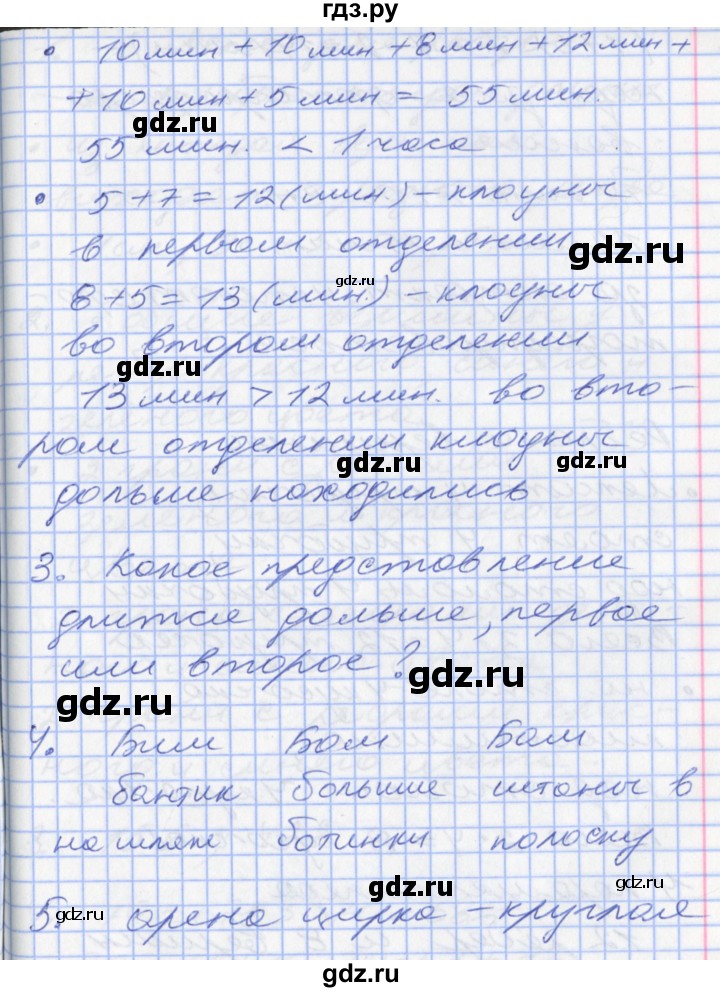 гдз.ру
• 10 мин + 10 мин + 8 мин + 12 мин +
+ 10 мин + 5 мин = 55 мин.
gdz.ru
gdz.ru
55 мин. < 1 часа
• 5 + 7 = 12 (мин.) – клоуны
в первом отделении
gdz.ru
gdz.ru
8 + 5 = 13 (мин.) – клоуны
во втором отделении
gdz.ru
13 мин > 12 мин. во вто-
ром отделении клоуны
gdz.ru
gdz.ru
дольше находились
3. Какое представление
длится дольше, первое
или второе?
gdz.ru
gdz.ru
4. Бим Бом Бам
бантик большие штаны в
на шляпе ботинки полоску
gdz.ru
gdz.ru
gdz.ru
5. арена цирка – круглая
gdz.ru